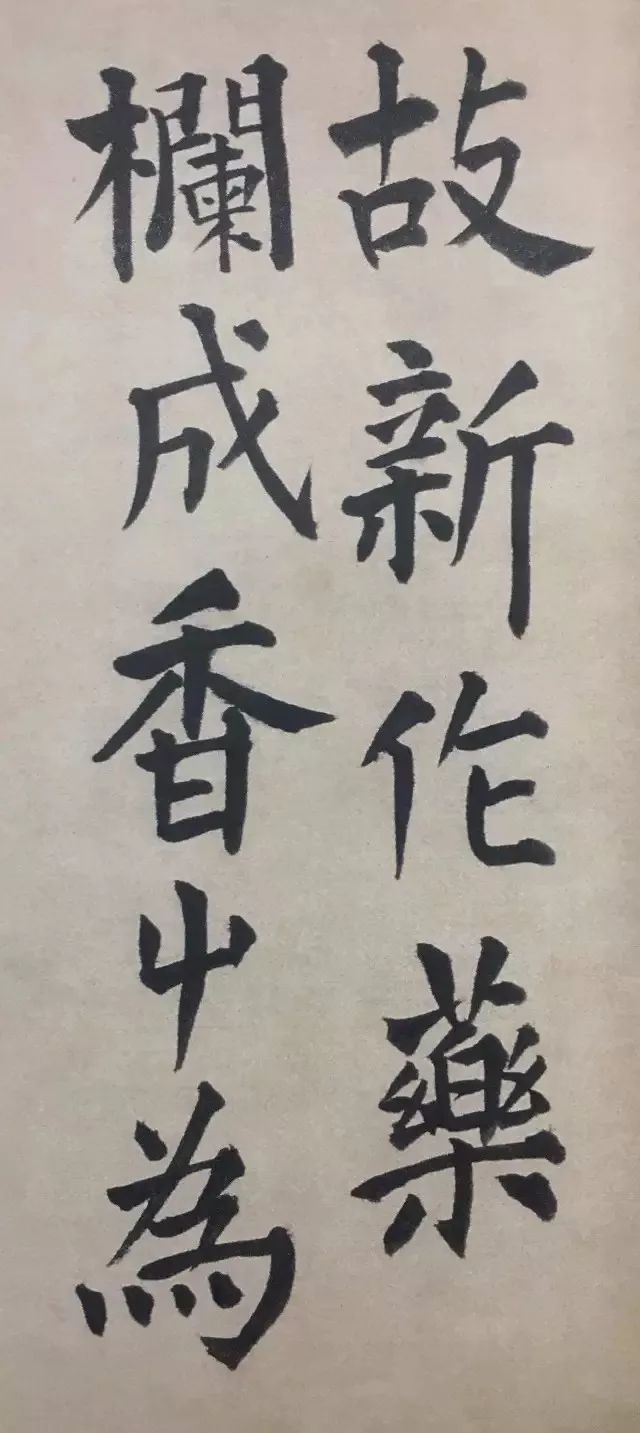 故新作藥
欄成香山為